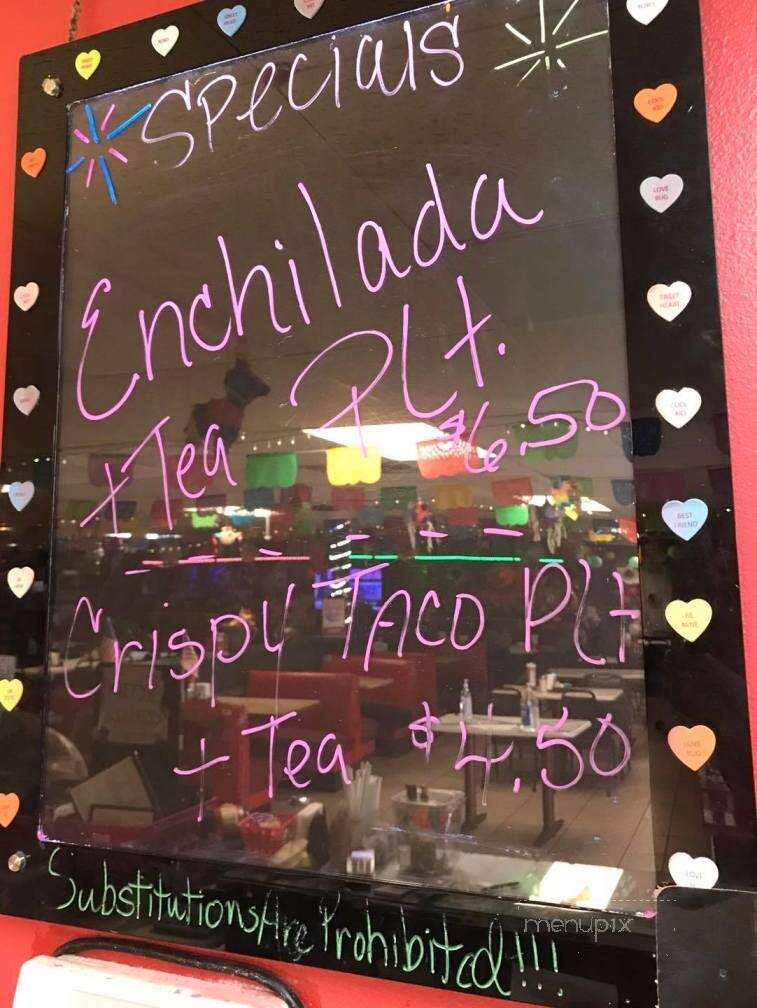 Specials
Enchilada
Plt.
+ Tea $6.50
Crispy Taco Plt
+ Tea $4.50
Substitutions Are Prohibited!!!
menupix
COOL KID
LOVE BUG
SWEET HEART
COOL KID
BEST FRIEND
BE MINE
LOVE BUG